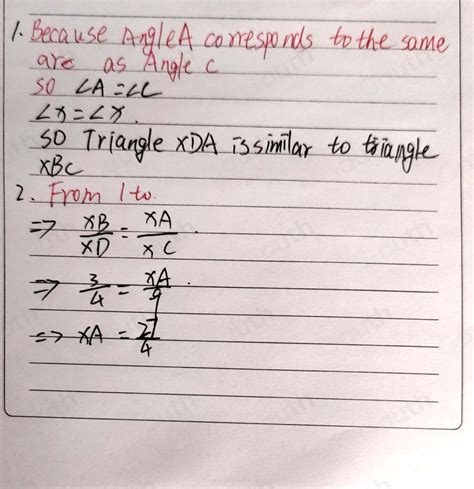 1. Because Angle A corresponds to the same
arc as Angle C
SO ∠A = ∠C
∠X = ∠X.
SO Triangle XDA is similar to triangle
XBC
2. From 1 to.
⇒ XB/XD = XA/XC.
⇒ 3/4 = XA/9.
⇒ XA = 27/4